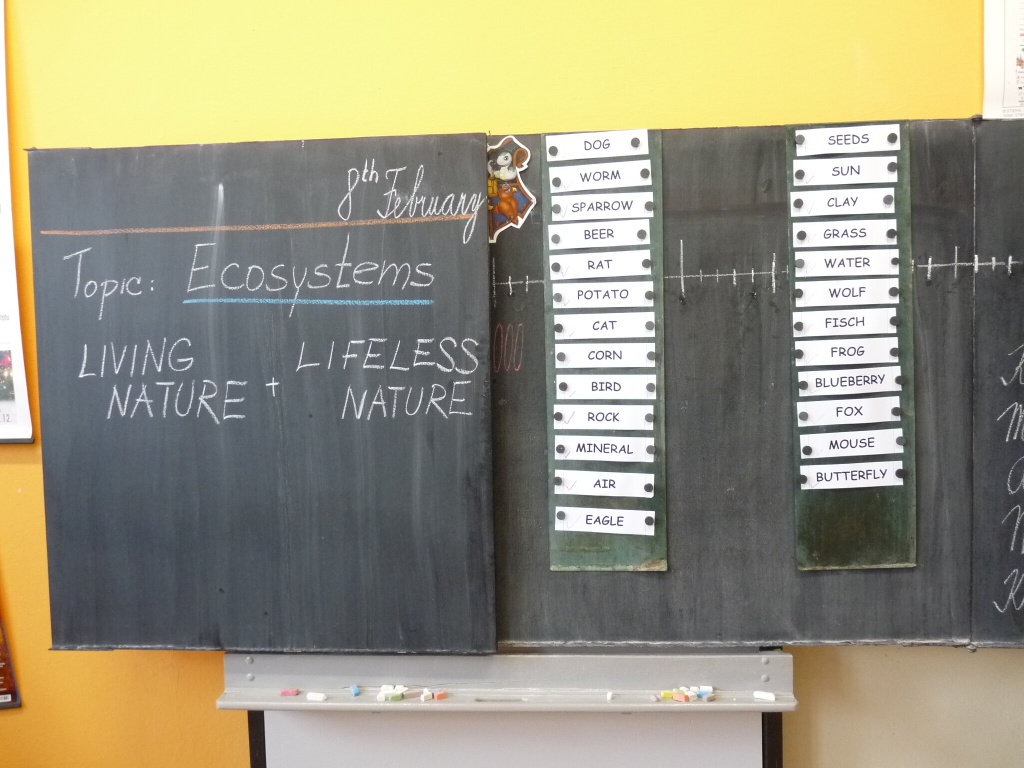 8th February
Topic: Ecosystems
LIVING
NATURE
+
LIFELESS
NATURE
DOG
WORM
SPARROW
BEER
RAT
POTATO
CAT
CORN
BIRD
ROCK
MINERAL
AIR
EAGLE
SEEDS
SUN
CLAY
GRASS
WATER
WOLF
FISCH
FROG
BLUEBERRY
FOX
MOUSE
BUTTERFLY